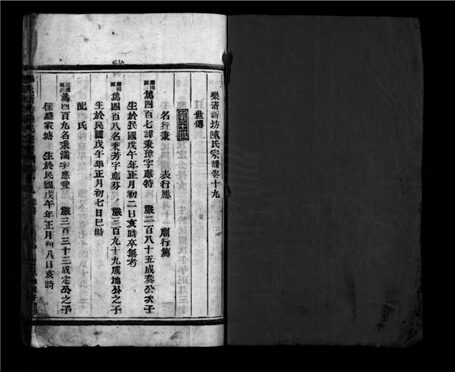 樂清新坊陳氏宗譜卷十九
世傳
名行秉 表行應 廟行萬
萬四百七諱秉璋字應特 嚴二百八十五成奏公次子
生於民國戊午年正月初二日亥時卒無考
萬四百八名秉芳字應芬 嚴三百九十九成地公之子
生於民國戊午年正月初七日巳時
配 氏
萬四百九名秉滿字應豐 嚴三百三十三成定公之子
住盛家塘 生於民國戊午年正月初八日亥時